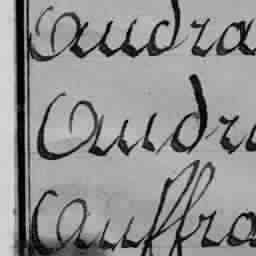 Audra
Audra
Auffra